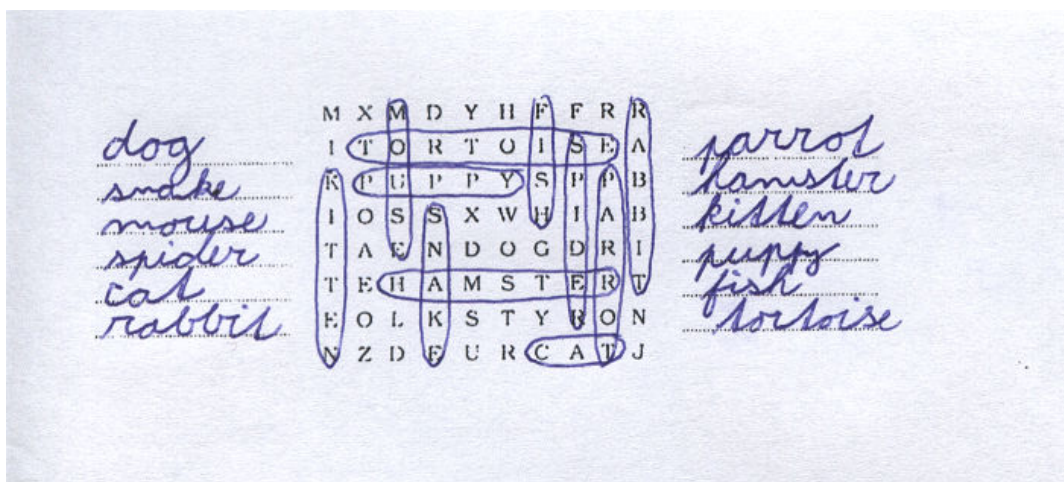 dog
snake
mouse
spider
cat
rabbit
M X M D Y H F F R R
I T O R T O I S E A
K P U P P Y S P P B
I O S S X W H I A B
T A E N D O G D R I
T E H A M S T E R T
E O L K S T Y R O N
N Z D E U R C A T J
parrot
hamster
kitten
puppy
fish
tortoise